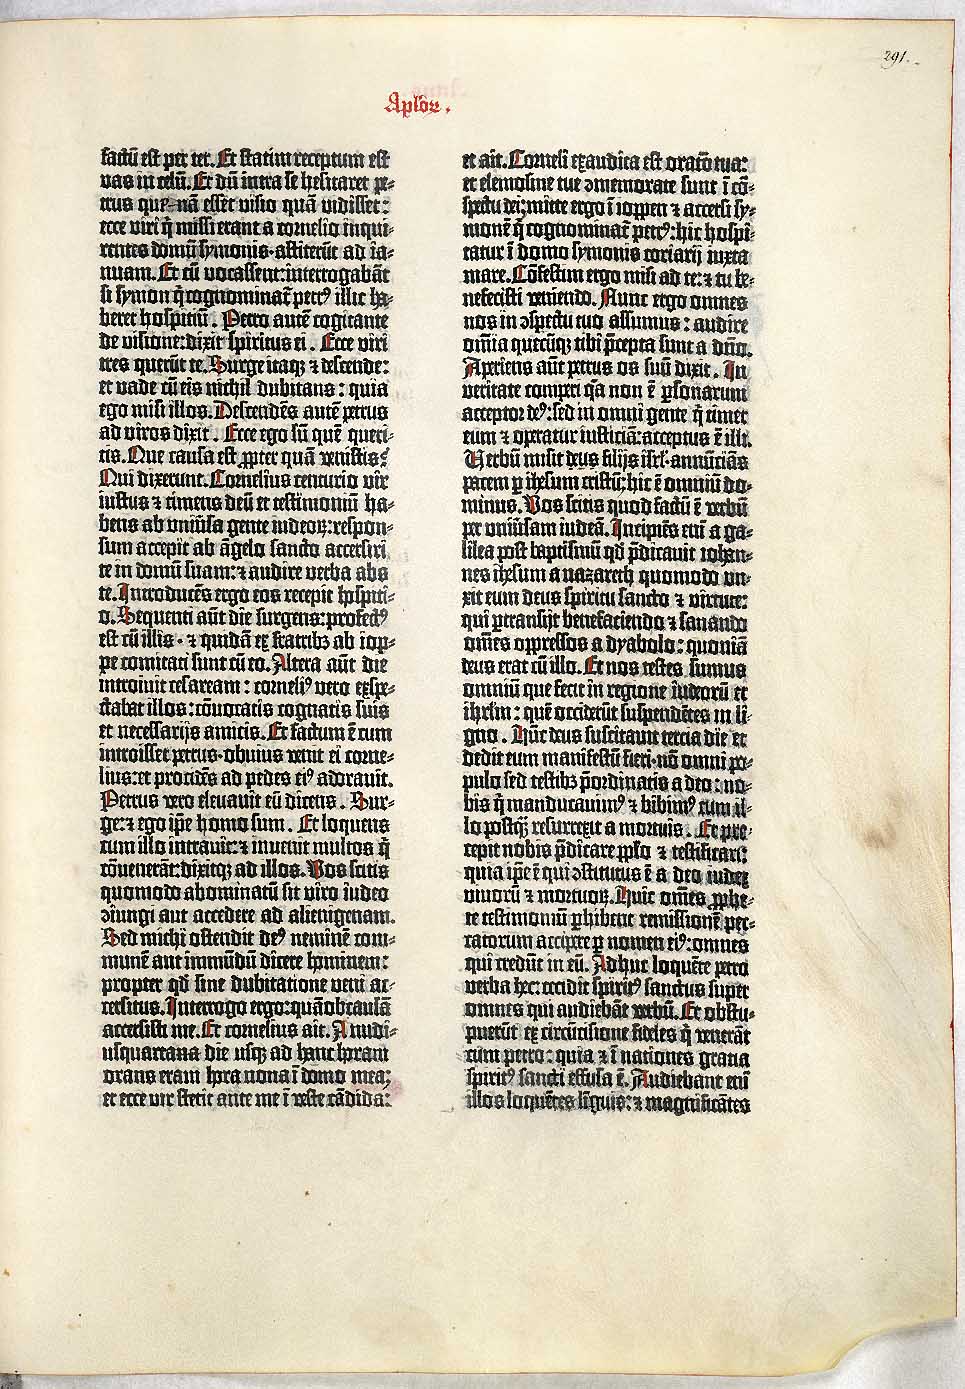 291.
Aploꝝ.
factū est per ter. Et statim receptum est
vas in celū. Et dū intra se hesitaret pe-
trus que-nā esset visio quā vidisset:
ecce viri q̄ missi erant a cornelio inqui-
rentes domū symonis·astiterūt ad ia-
nuam. Et cū vocassent:interrogabāt
si symon q̄ cognominat̄ petrꝰ illic ha-
beret hospitiū. Petro autē cogitante
de visione:dixit spiritus ei. Ecce viri
tres querūt te. Surge itaqꝫ ⁊ descende:
et vade cū eis nichil dubitans: quia
ego misi illos. Descendēs autē petrus
ad viros dixit. Ecce ego sū quē queri-
tis. Que causa est ꝓpter quā venistis?
Qui dixerunt. Cornelius centurio vir
iustus ⁊ timens deū et testimoniū ha-
bens ab uniūsa gente iudeoꝝ:respon-
sum accepit ab āgelo sancto accersiri
te in domū suam:⁊ audire verba abs
te. Introducēs ergo eos recepit hospiti-
o. Sequenti aūt die surgens:profectꝰ
est cū illis·⁊ quidā ex fratribꝫ ab iop-
pe comitati sunt cū eo. Altera aūt die
introiuit cesaream: corneliꝰ vero exspe-
ctabat illos:cōuocatis cognatis suis
et necessarijs amicis. Et factum ē cum
introisset petrus·obuius venit ei corne-
lius:et procidēs ad pedes eiꝰ adorauit.
Petrus vero eleuauit eū dicens. Sur-
ge:⁊ ego ip̄e homo sum. Et loquens
cum illo intrauit:⁊ inuenit multos q̄
cōuenerāt:dixitqꝫ ad illos. Vos scitis
quomodo abominatū sit viro iudeo
ↄiungi aut accedere ad alienigenam.
Sed michi ostendit deꝰ neminē com-
munē aut immūdū dicere hominem:
propter qd̄ sine dubitatione veni ac-
cersitus. Interrogo ergo:quā ob causā
accersisti me. Et cornelius ait. A nudi-
usquartana die usqꝫ ad hanc horam
orans eram hora nona ī domo mea:
et ecce vir stetit ante me ī veste cādida:
et ait. Corneli exaudita est orat̄o tua:
et elemosine tue ↄmemorate sunt ī cō-
spectu dei:mitte ergo ī ioppen ⁊ accersi sy-
monē q̄ cognominat̄ petrꝰ:hic hospi-
tatur ī domo symonis coriarij iuxta
mare. Cōfestim ergo misi ad te:⁊ tu be-
nefecisti veniendo. Nunc ergo omnes
nos in ↄspectu tuo assumus: audire
om̄ia quecūqꝫ tibi p̄cepta sunt a dn̄o.
Aperiens aūt petrus os suū dixit. In
veritate comperi q̄a non ē ꝑsonarum
acceptor deꝰ:sed in omni gente q̄ timet
eum ⁊ operatur iusticiā:acceptus ē illi.
Verbū misit deus filijs isrl̄·annūciās
pacem ꝑ ihesum cristū:hic ē omniū do-
minus. Vos scitis quod factū ē verbū
per uniūsam iudeā. Incipiēs enī a ga-
lilea post baptismū qd̄ p̄dicauit iohan-
nes ihesum a nazareth quomodo vn-
xit eum deus spiritu sancto ⁊ virtute:
qui ꝑtransijt benefaciendo ⁊ sanando
om̄es oppressos a dyabolo: quoniā
deus erat cū illo. Et nos testes sumus
omniū que fecit in regione iudeorū et
ihrl̄m: quē occiderūt suspendētes in li-
gno. Hūc deus suscitauit tercia die et
dedit eum manifestū fieri·nō omni po-
pulo sed testibꝫ p̄ordinatis a deo:no-
bis q̄ manducauimꝰ ⁊ bibimꝰ cum il-
lo postqꝫ̄ resurrexit a mortuis. Et pre-
cepit nobis p̄dicare pplo ⁊ testificari:
quia ip̄e ē qui ↄstitutus ē a deo iudex
viuorū ⁊ mortuoꝝ. Huic om̄es ꝓphe-
te testimoniū ꝑhibent remissionē pec-
catorum accipere ꝑ nomen eiꝰ:omnes
qui credūt in eū. Adhuc loquēte petro
verba hec:cecidit spiritꝰ sanctus super
omnes qui audiebāt verbū. Et obstu-
puerūt ex circūcisione fideles q̄ venerāt
cum petro: quia ⁊ ī nationes gratia
spiritꝰ sancti effusa ē. Audiebant enī
illos loquētes līguis:⁊ magnificātes